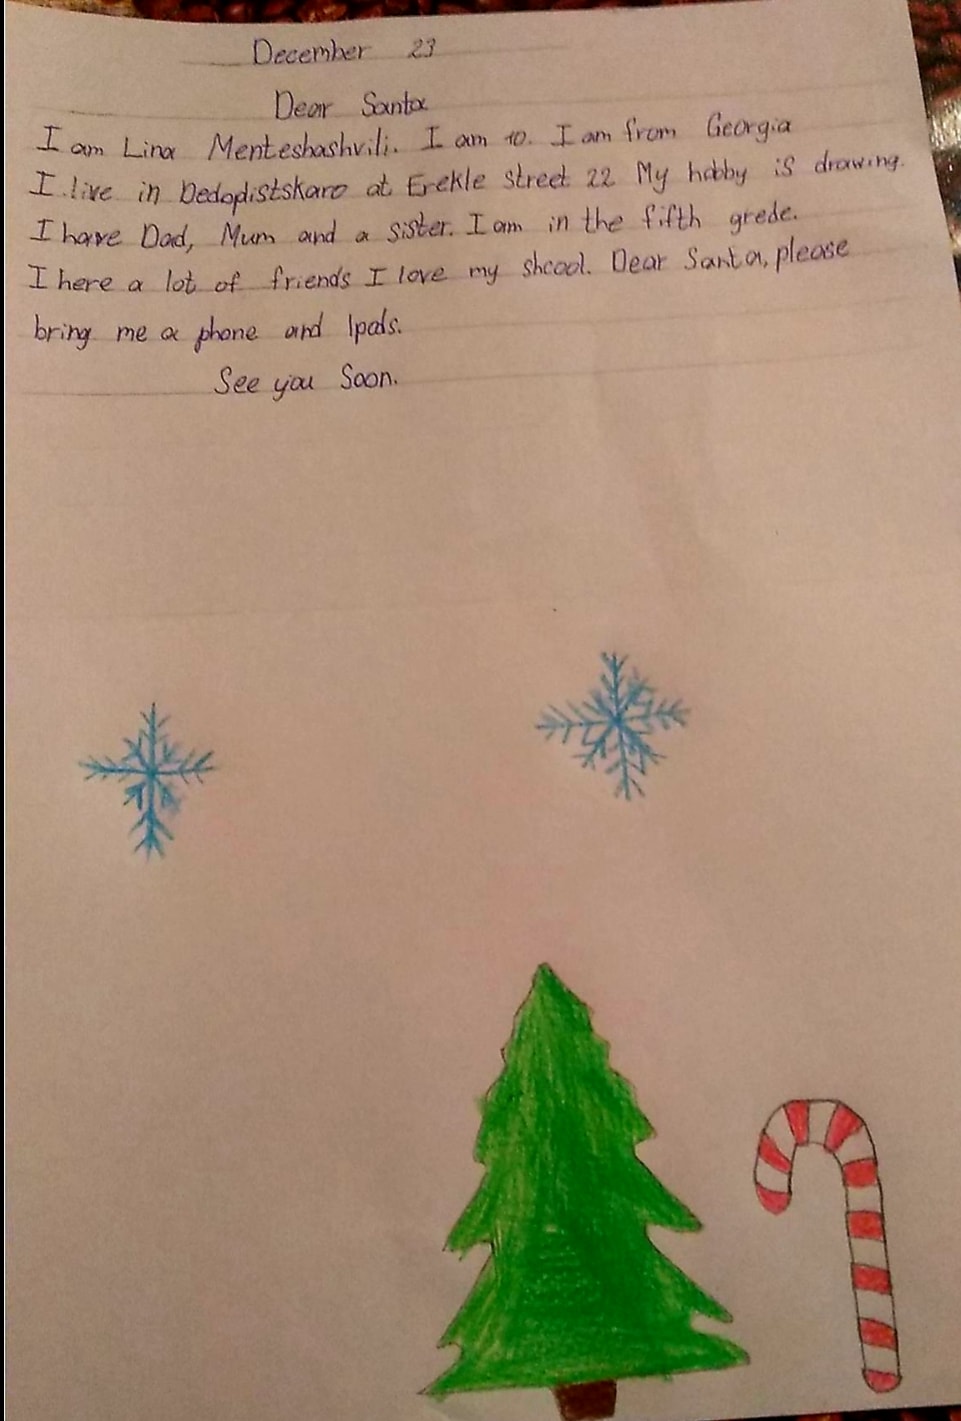 December 23
Dear Santa
I am Lina Menteshashvili. I am 10. I am from Georgia
I live in Dedoplistskaro at Erekle street 22 My hobby is drawing.
I have Dad, Mum and a sister. I am in the fifth grede.
I here a lot of friends I love my shcool. Dear Santa, please
bring me a phone and Ipods.
See you Soon.